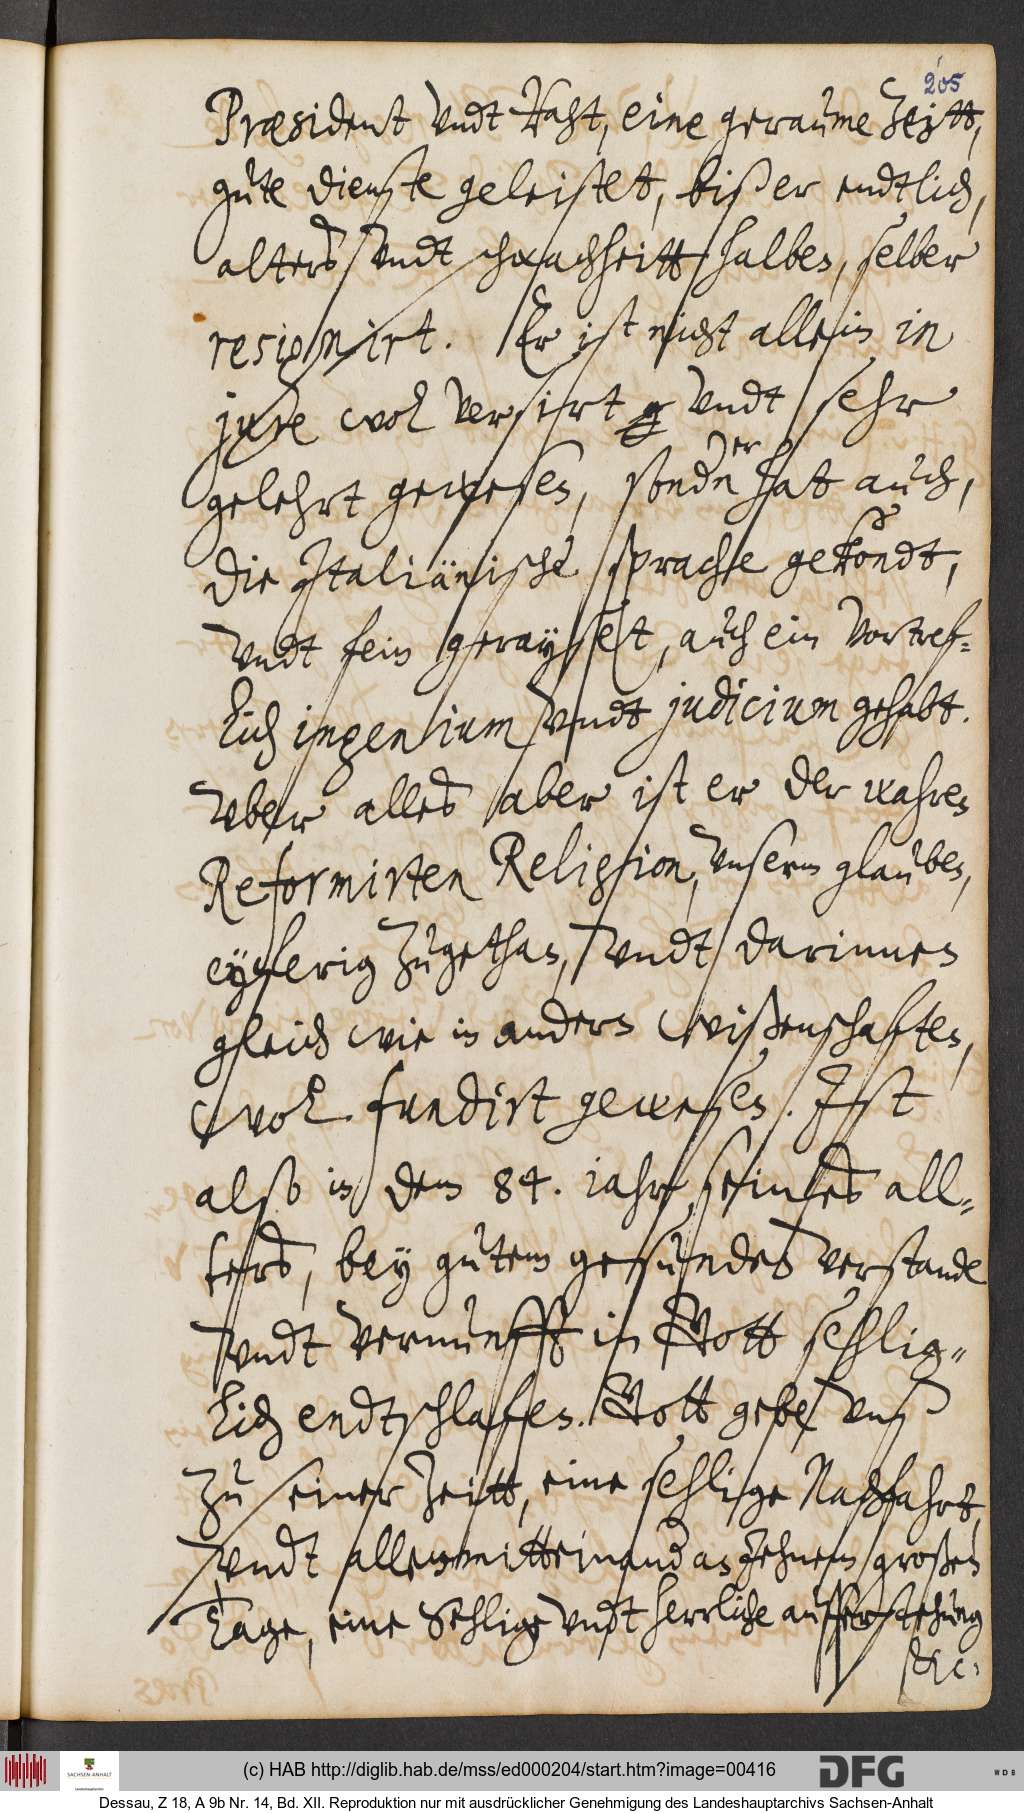 205
Præsident vndt Raht, eine geraume zeitt,
gute dienste geleistet, biß er endtlich,
alters vndt schwachheitt halben, selber
resignirt. Er ist nicht allein in
jure wol versirt vndt sehr
gelehrt gewesen, sondern er hat auch,
die Italiänische sprache gekondt,
vndt fein gerayset, auch ein vortref-
lich ingenium vndt judicium gehabt.
Vber alles aber ist er der wahren
Reformirten Religion, vnserm glauben,
eyferig zugethan, vndt darinnen
gleich wie in andern wißenschaften,
wol fundirt gewesen. Ist
also in dem 84. iahr seines all-
ters, bey gutem gesundes verstande
vndt vernunfft in Gott sehlig-
lich endtschlafen. Gott gebe vnß
zu seiner zeitt, eine sehlige Nachfahrt,
vndt allenmitteinand an jehnem großen
Tage, eine Sehlige vndt herrliche aufferstehung
&c:
(c) HAB http://diglib.hab.de/mss/ed000204/start.htm?image=00416
SACHSEN-ANHALT
DFG
WDB
Dessau, Z 18, A 9b Nr. 14, Bd. XII. Reproduktion nur mit ausdrücklicher Genehmigung des Landeshauptarchivs Sachsen-Anhalt